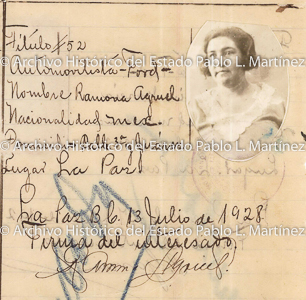 Título #52
Automovilista-Ford-
Nombre Ramona Agruel
Nacionalidad mex.
Lugar La Paz
La Paz B.C. 13 Julio de 1928
Firma del interesado.
Archivo Histórico del Estado Pablo L. Martínez
Archivo Histórico del Estado Pablo L. Martínez
Archivo Histórico del Estado Pablo L. Martínez